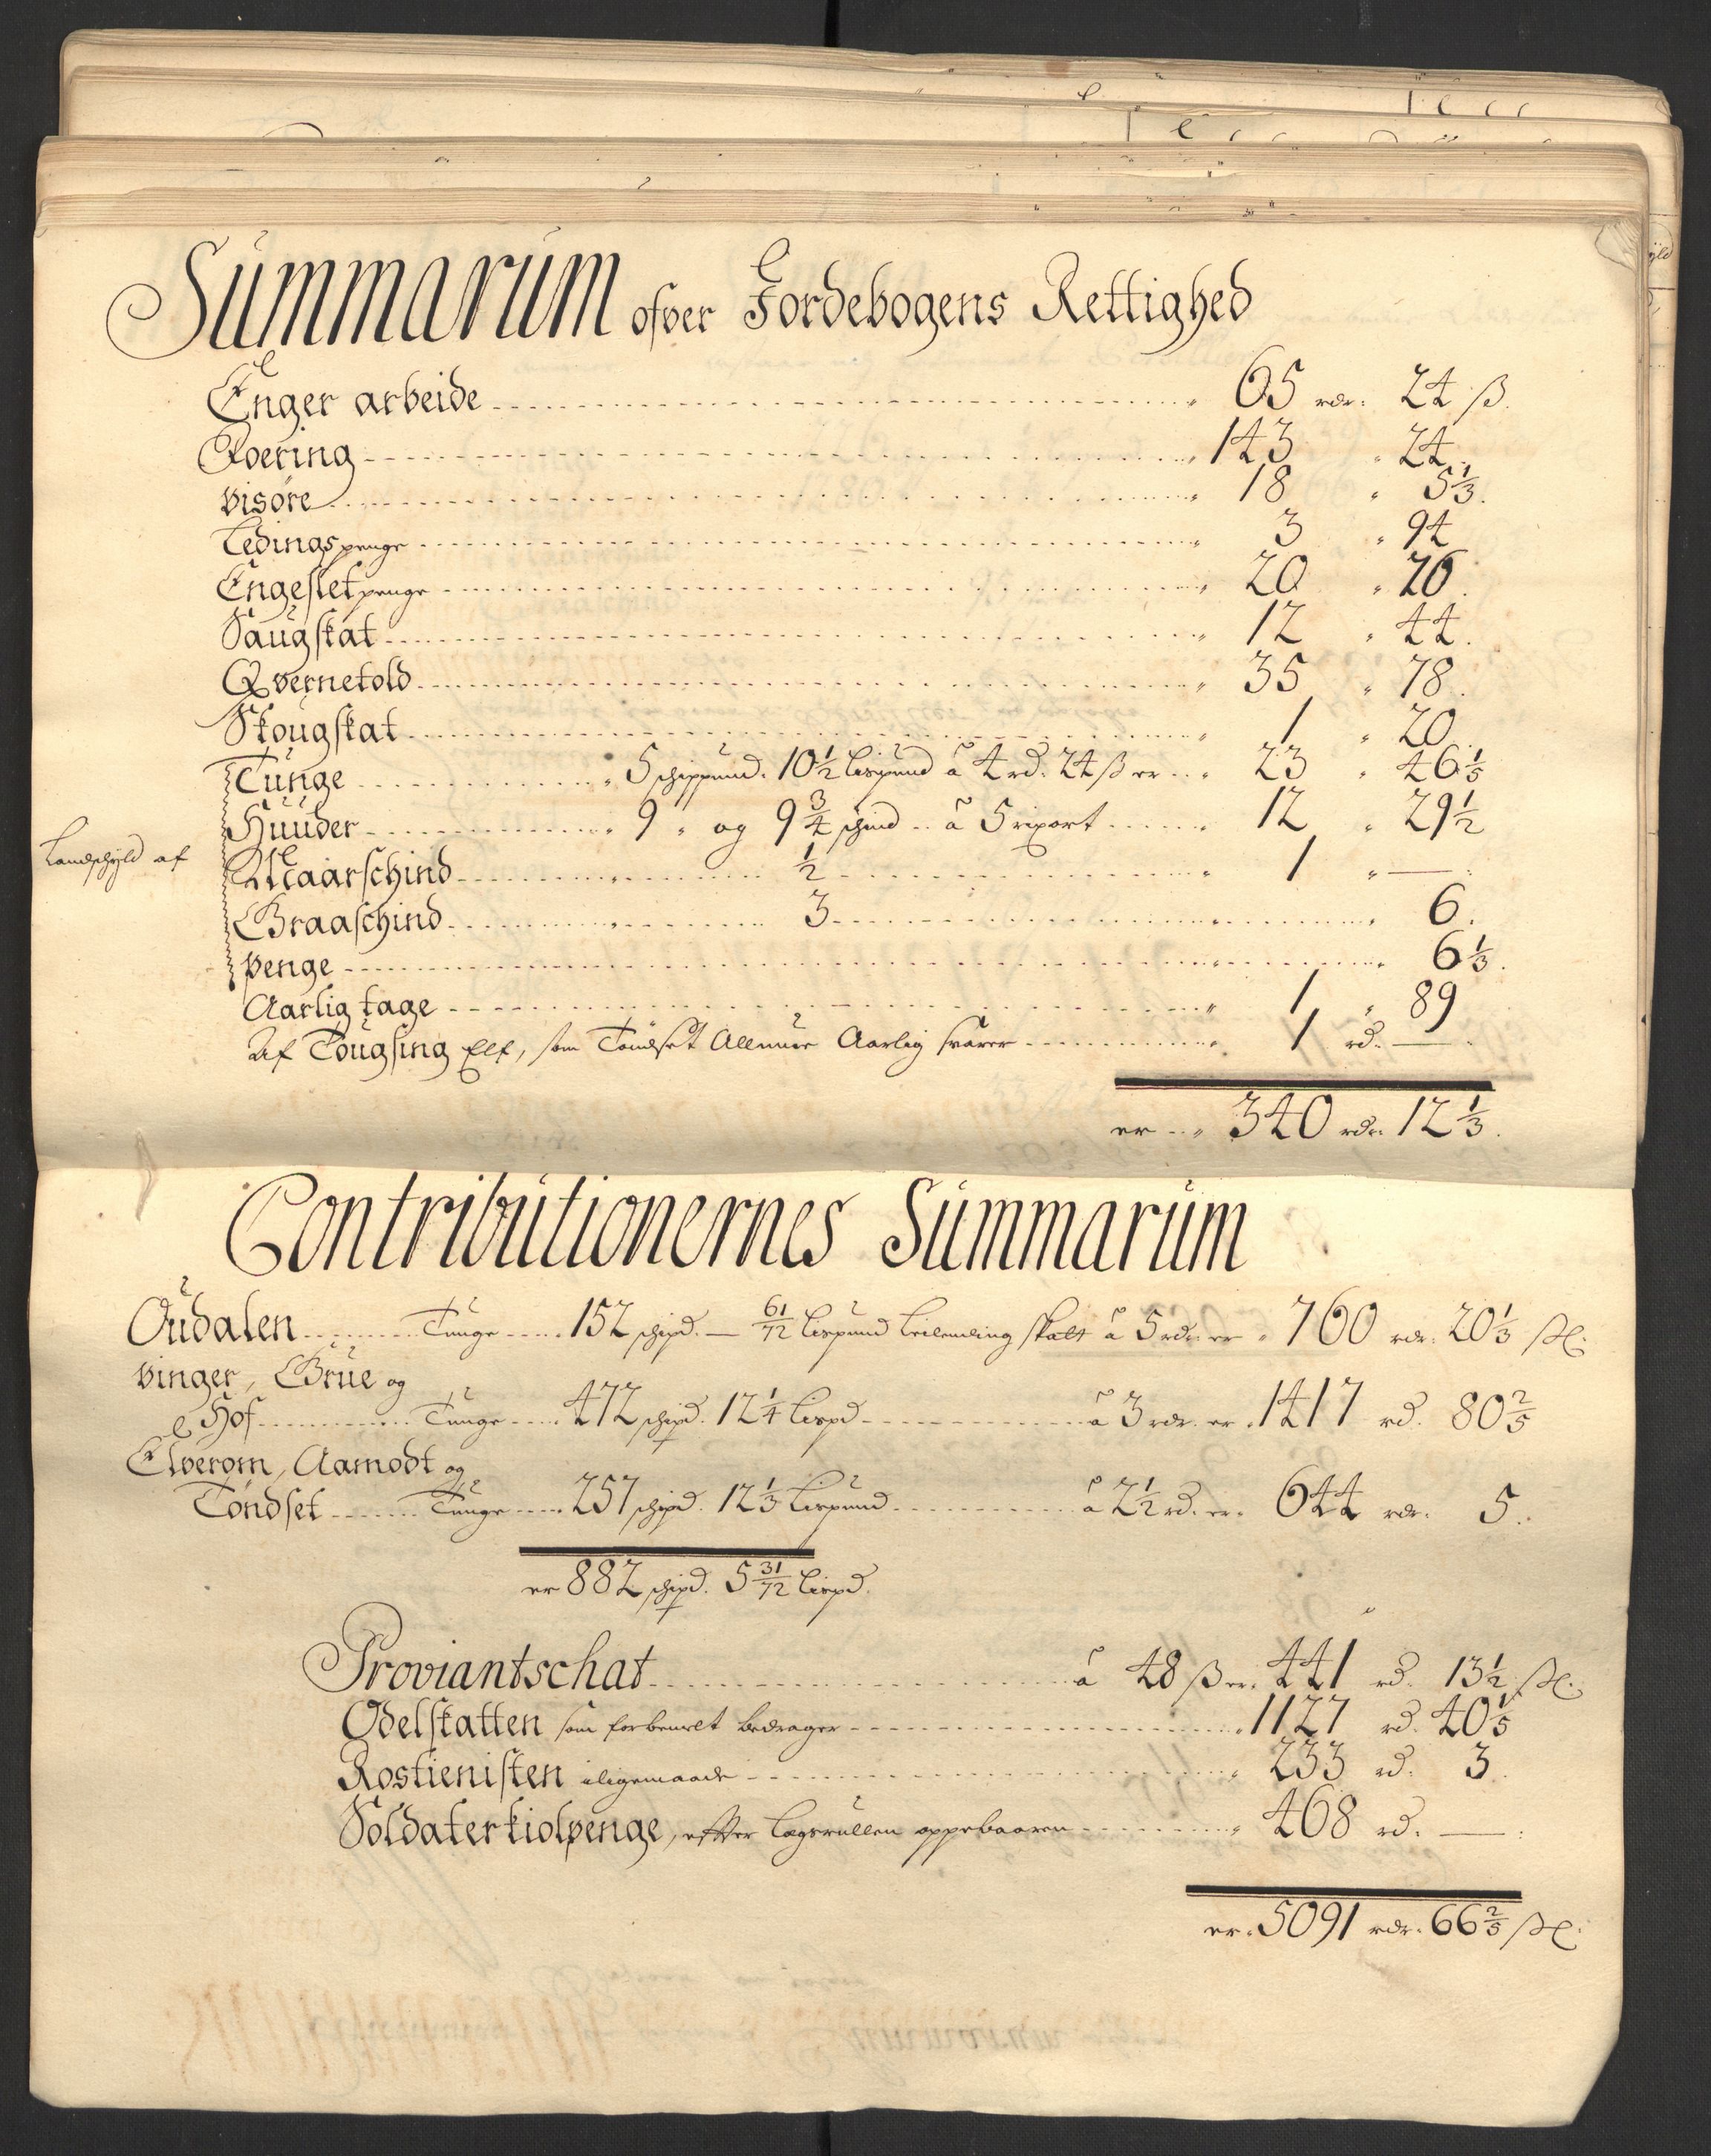 Summarum ofver Jordebogens Rettighed
Enger arbeide 65 rdr. 24 ß.
Foering 143 " 24.
visøre 18 " 5 1/3.
Ledingspenge 3 " 94
Engesletpenge 20 " 26.
Saugskat 12 " 44.
Qvernetold 35 " 78.
Skougskat 1 " 20
Tunge " 5 schippund. 10 1/2 Lispund â 4 rd. 24 ß er " 23 " 46 1/5
Huuder " 9 " og 9 3/4 schind â 5 rixort " 12 " 29 1/2
Landschyld af
Maarschind " 1/2 " 1 " —
Graaschind " 3 " 6.
penge " 6 1/3.
Aarlig tage " 1 " 89
Af Tougsing Elf, som Tøndset Almue Aarlig svarer " 1 rd. —
er " 340 rdr. 12 1/3.
Contributionernes Summarum
Oudalen Tunge 152 schpd. — 61/72 Lispund Leilending skatt â 5 rdr. er " 760 rdr. 20 1/3 ßl.
vinger, Grue og
Hof Tunge 472 schpd. 12 1/4 Lispd â 3 rdr. er 1417 rd. 80 2/5
Elverom, Aamodt og
Tøndset Tunge 257 schpd. 12 1/3 Lispund â 2 1/2 rd. er 644 rdr. 5.
er 882 schpd. 5 31/72 Lispd.
Proviantschat â 48 ß er 441 rd. 13 1/2 ßl.
Odelskatten som forbemelt bedrager 1127 rd. 40 1/5
Rostienisten iligemaade 233 rd. 3.
Soldaterkiolpenge, efter Lægsrullen oppebaaren 468 rd. —
er 5091 rdr. 66 2/5 ßl.